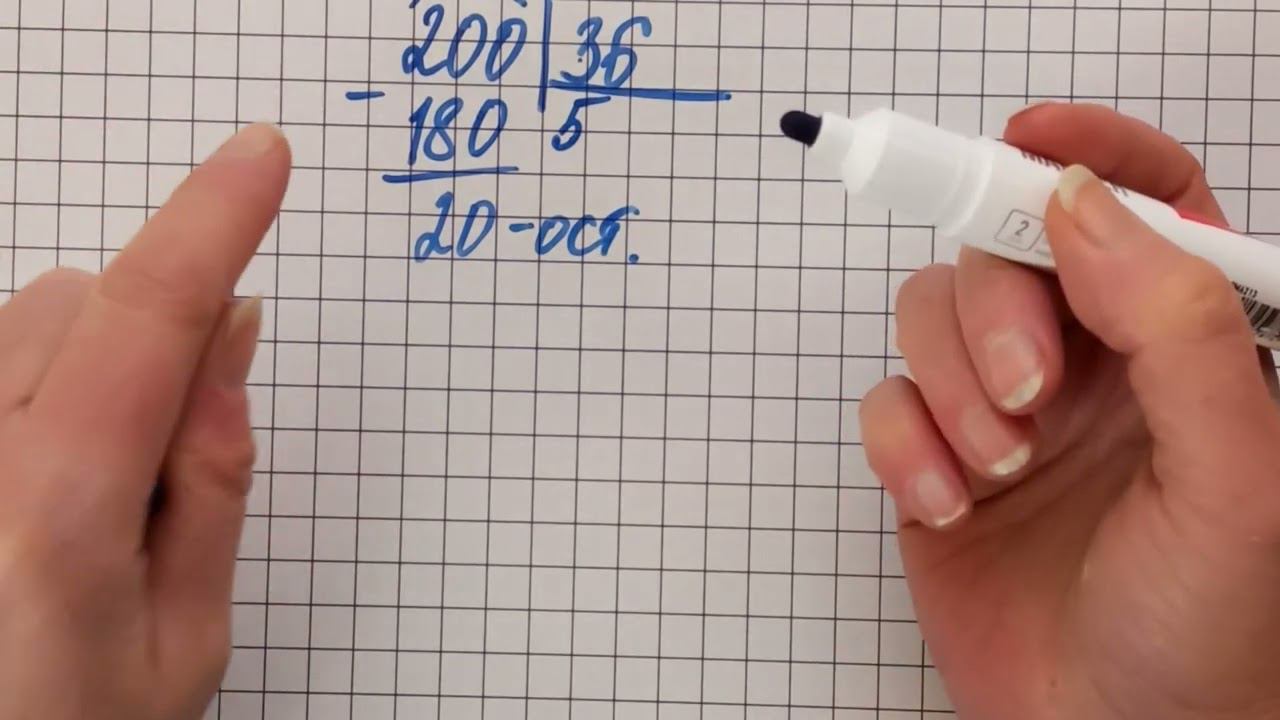 200 36
- 180 5
20 - ост.
2